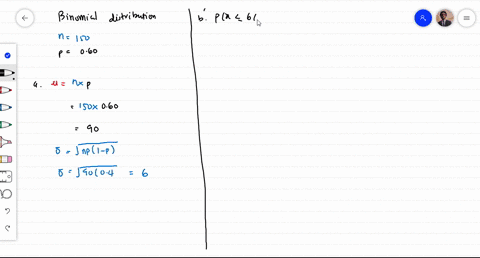 Binomial distribution
n = 150
p = 0.60
a. μ = n×p
= 150×0.60
= 90
σ = √np(1-p)
σ = √90(0.4) = 6
b. p(x ≤ 6